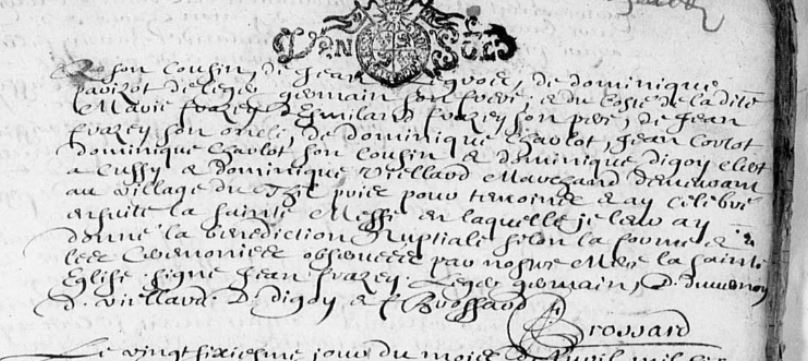 & son cousin, de Jean de dominique
pavizot de leger germain son frere, & du costé de ladite
Marie frazey d'Emiland frazey son pere, de Jean
frazey son oncle, de dominique Charlot, Jean
dominique Charlot son cousin & dominique digoy
a Cussy & dominique Viellard Marchand demeurant
au village du pries pour temoins & ay celebré
ensuite la sainte Messe en laquelle je leur ay
donné la benediction Nuptiale selon la forme &
les Ceremonies observées par nostre Mere la sainte
Eglise. signé Jean frazey. Leger germain, D.
d. viellard. D. digoy, & f. Brossard
Brossard
Le vingt sixiesme jour du mois de